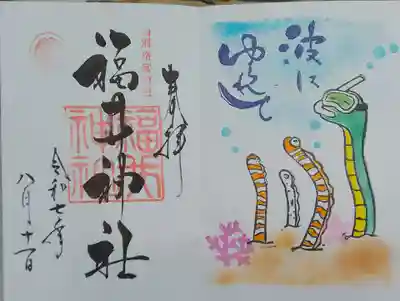 奉拝
福井神社
福井神社
令和七年
八月十一日
波に
ゆれて